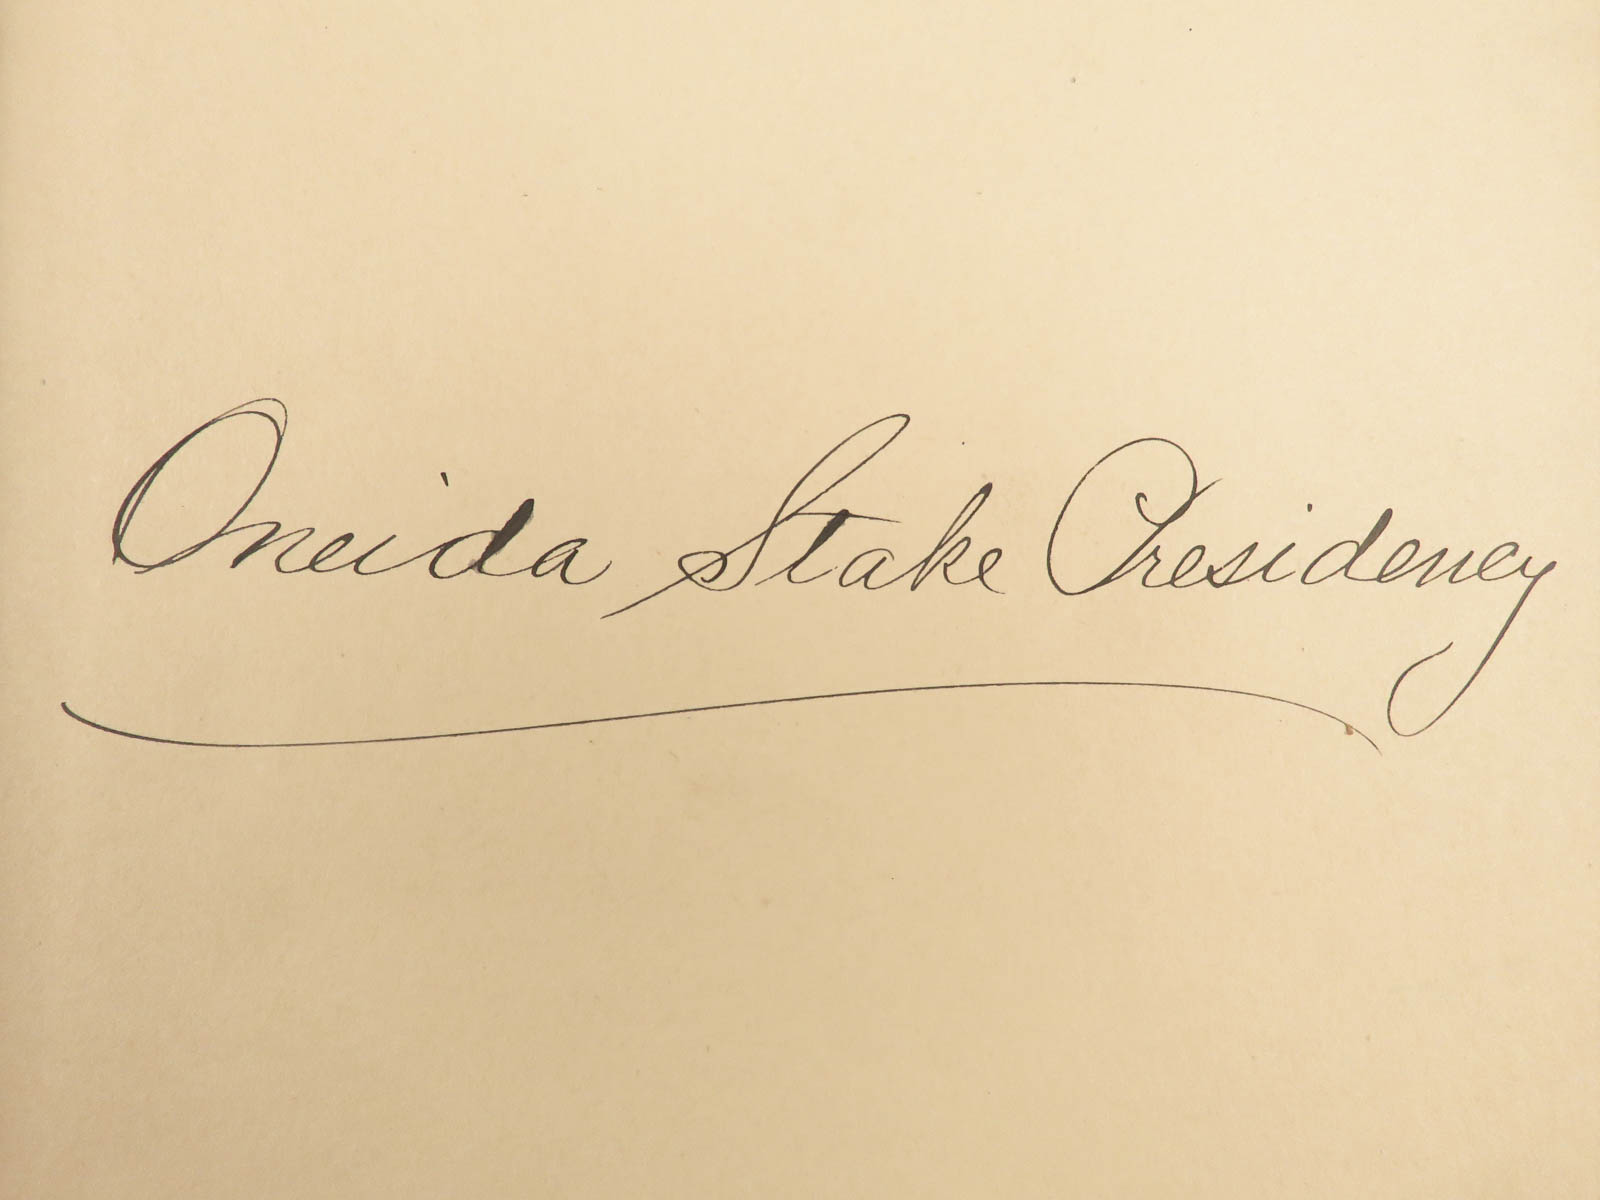 Oneida Stake Presidency